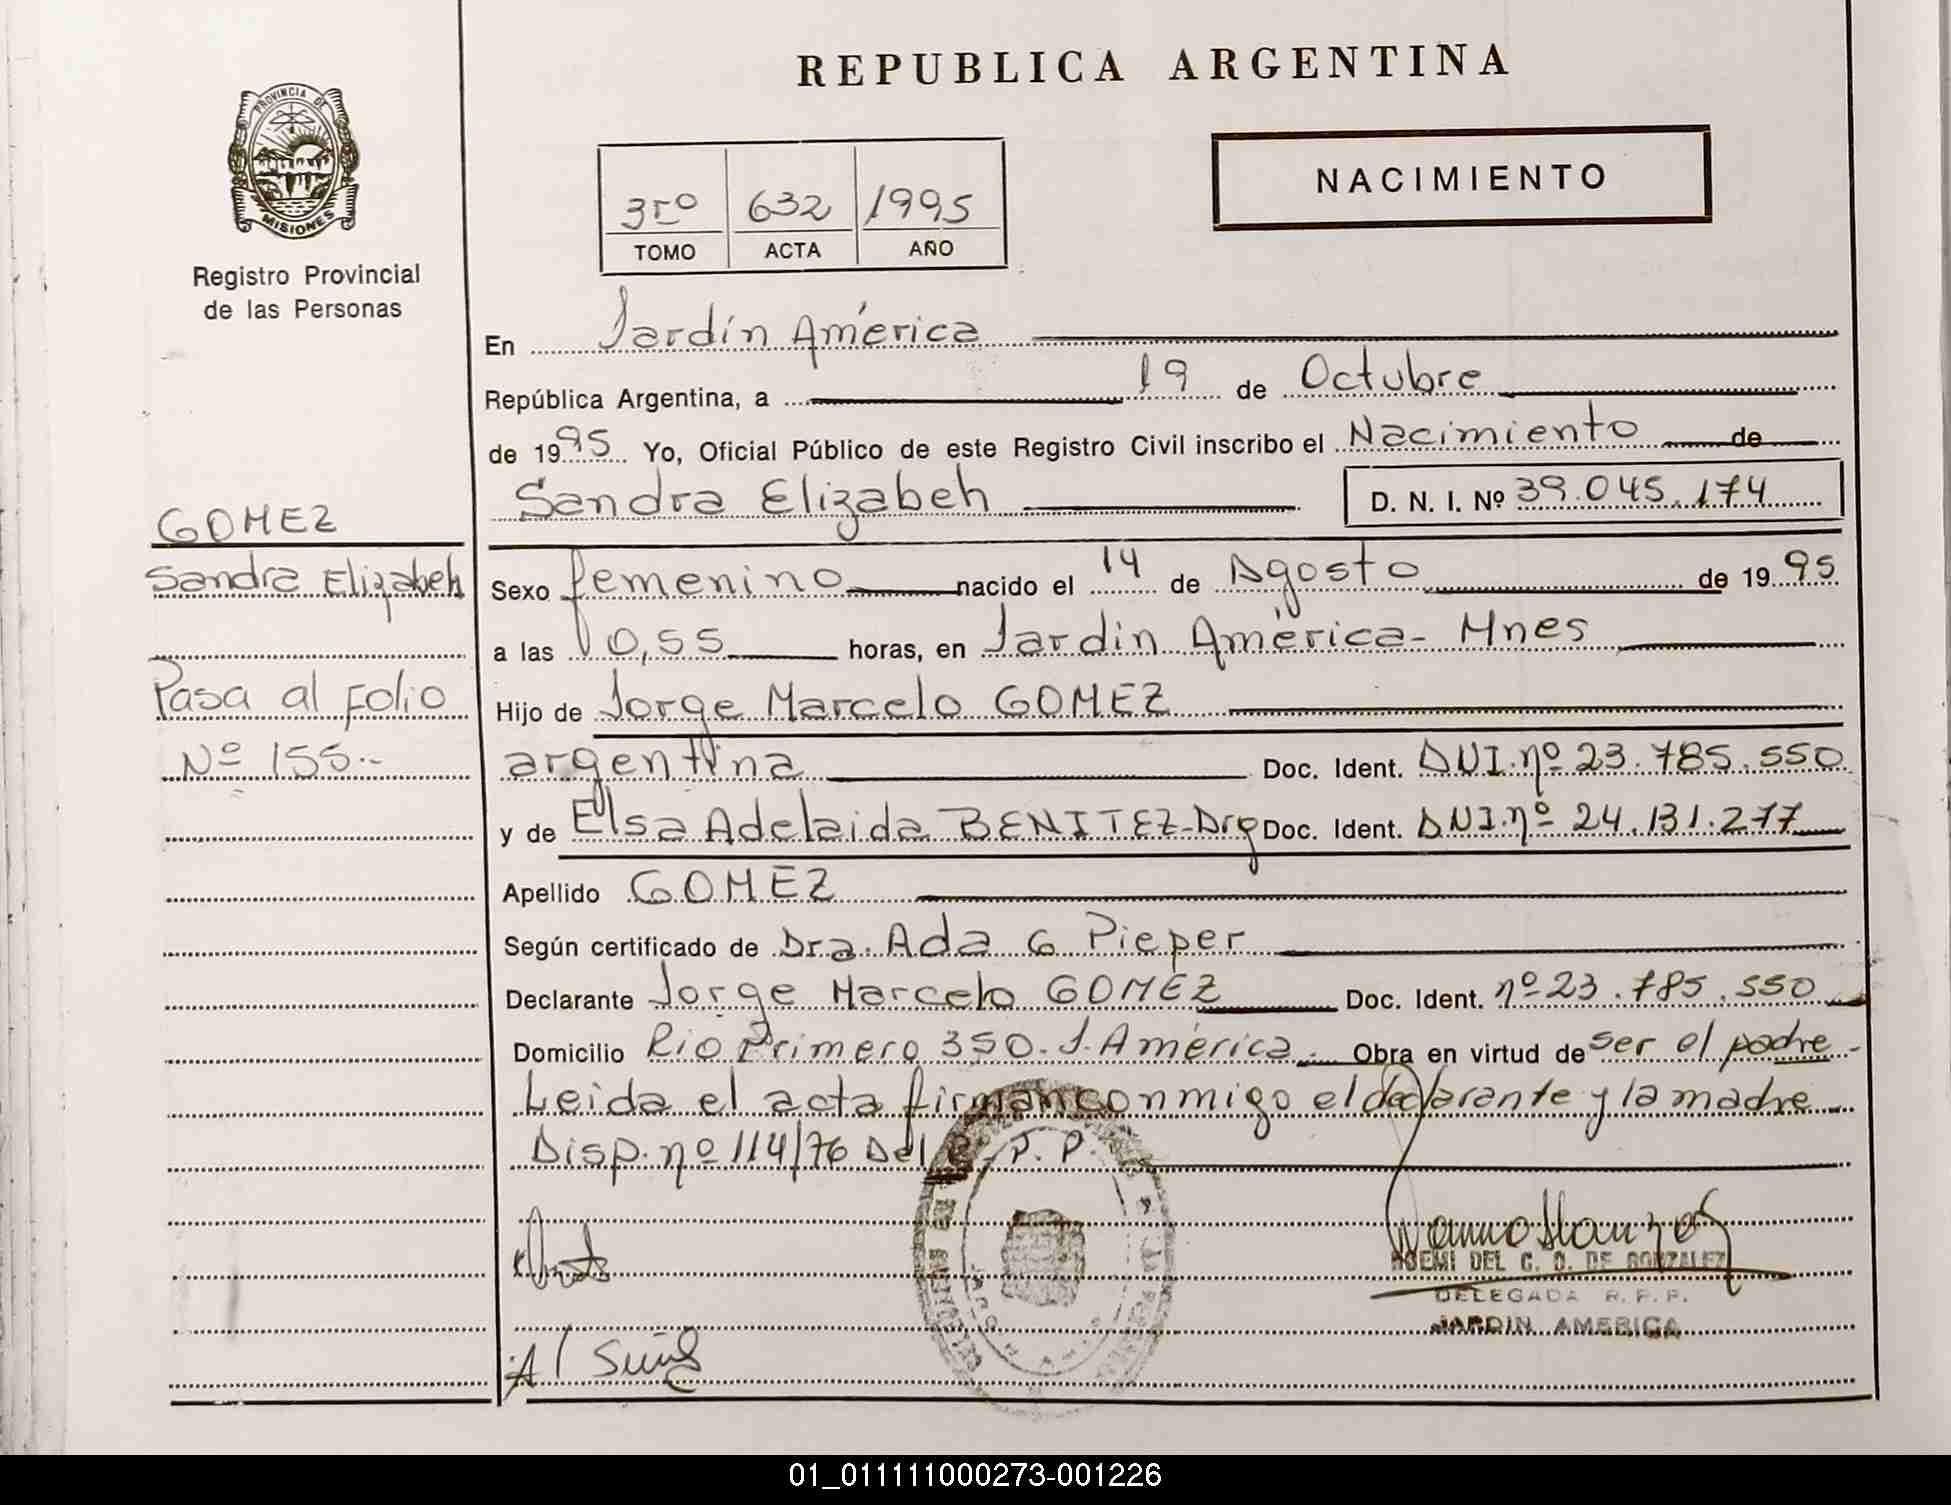 REPUBLICA ARGENTINA
PROVINCIA DE
MISIONES
Registro Provincial
de las Personas
3ro 632 1995
TOMO ACTA AÑO
NACIMIENTO
En Jardín América
República Argentina, a 19 de Octubre
de 1995 Yo, Oficial Público de este Registro Civil inscribo el Nacimiento de
Sandra Elizabeh D. N. I. Nº 39.045.174
GOMEZ
Sandra Elizabeh
Pasa al folio
Nº 155.-
Sexo femenino nacido el 14 de Agosto de 1995
a las 0,55 horas, en Jardín América- Mnes
Hijo de Jorge Marcelo GOMEZ
argentina Doc. Ident. DNI.nº 23.785.550
y de Elsa Adelaida BENITEZ-Arg Doc. Ident. DNI.nº 24.131.277
Apellido GOMEZ
Según certificado de Dra. Ada G Pieper
Declarante Jorge Marcelo GOMEZ Doc. Ident. nº 23.785.550
Domicilio Rio Primero 350. J. América. Obra en virtud de ser el padre-
Leida el acta firman conmigo el declarante y la madre
Disp. nº 114/76 Del R. P. P.
NOEMI DEL C. D. DE GONZALEZ
DELEGADA R. P. P.
JARDIN AMERICA
01_011111000273-001226